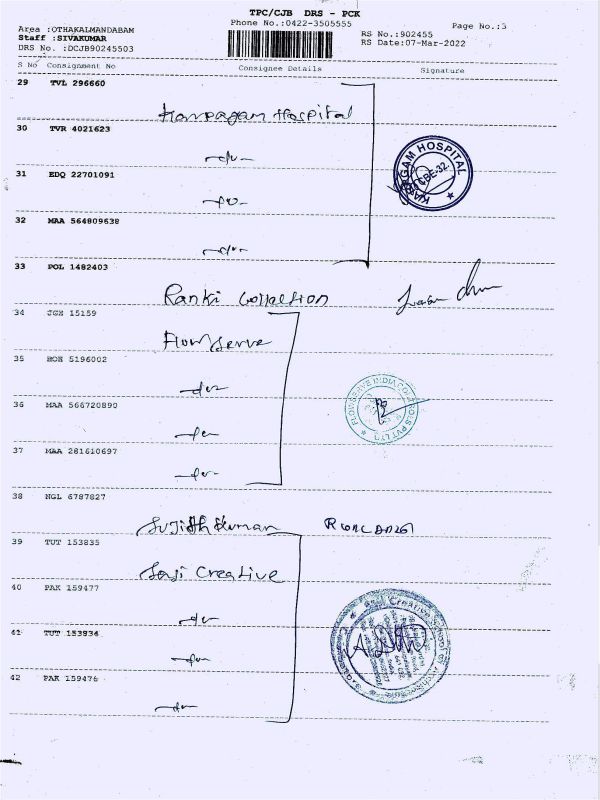 TPC/CJB DRS - PCK
Phone No.:0422-3505555
Page No.:3
Area :OTHAKALMANDABAM
Staff :SIVAKUMAR
DRS No. :DCJB90245503
RS No.:902455
RS Date:07-Mar-2022
S No Consignment No Consignee Details Signature
29 TVL 296660
Karpagam Hospital
30 TVR 4021623
-do-
31 EDQ 22701091
-do-
32 MAA 564809638
-do-
KARPAGAM HOSPITAL
CBE-32
33 POL 1482403
Ranki Collection
34 JGH 15159
Flowserve
35 HOH 5196002
-do-
36 MAA 566720890
-do-
FLOWSERVE INDIA CONTROLS PVT LTD
37 MAA 281610697
-do-
38 NGL 6787827
Sujith Kumar
39 TUT 153835
Saji Creative
40 PAK 159477
-do-
41 TUT 153934
-do-
42 PAK 159476
-do-